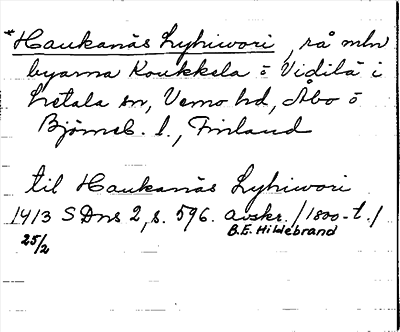 *Haukanäs Lyhiwori, rå mln
byarna Koukkela o Vidilä i
Letala sn, Vemo hd, Åbo o
Björneb. l., Finland
til Haukanäs Lyhiwori
1413 SDns 2, s. 596. avskr. /1800-t./
25/2 B.E. Hildebrand